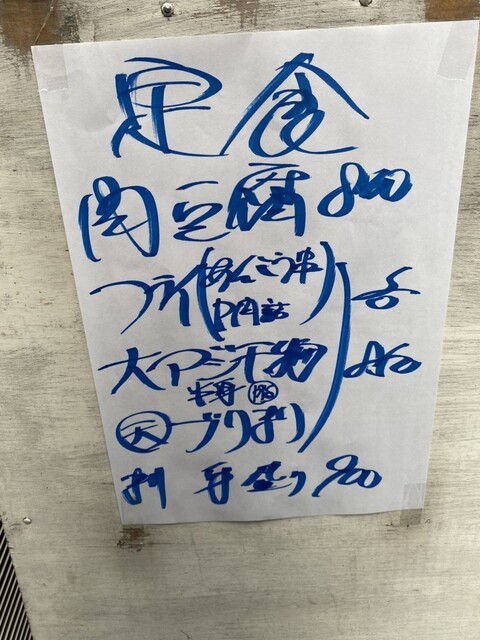 定食
肉豆腐 800
フライ(あんこう串
P肉詰)
大アジ干物
半身
天 ブリ
刺 手盛り 900